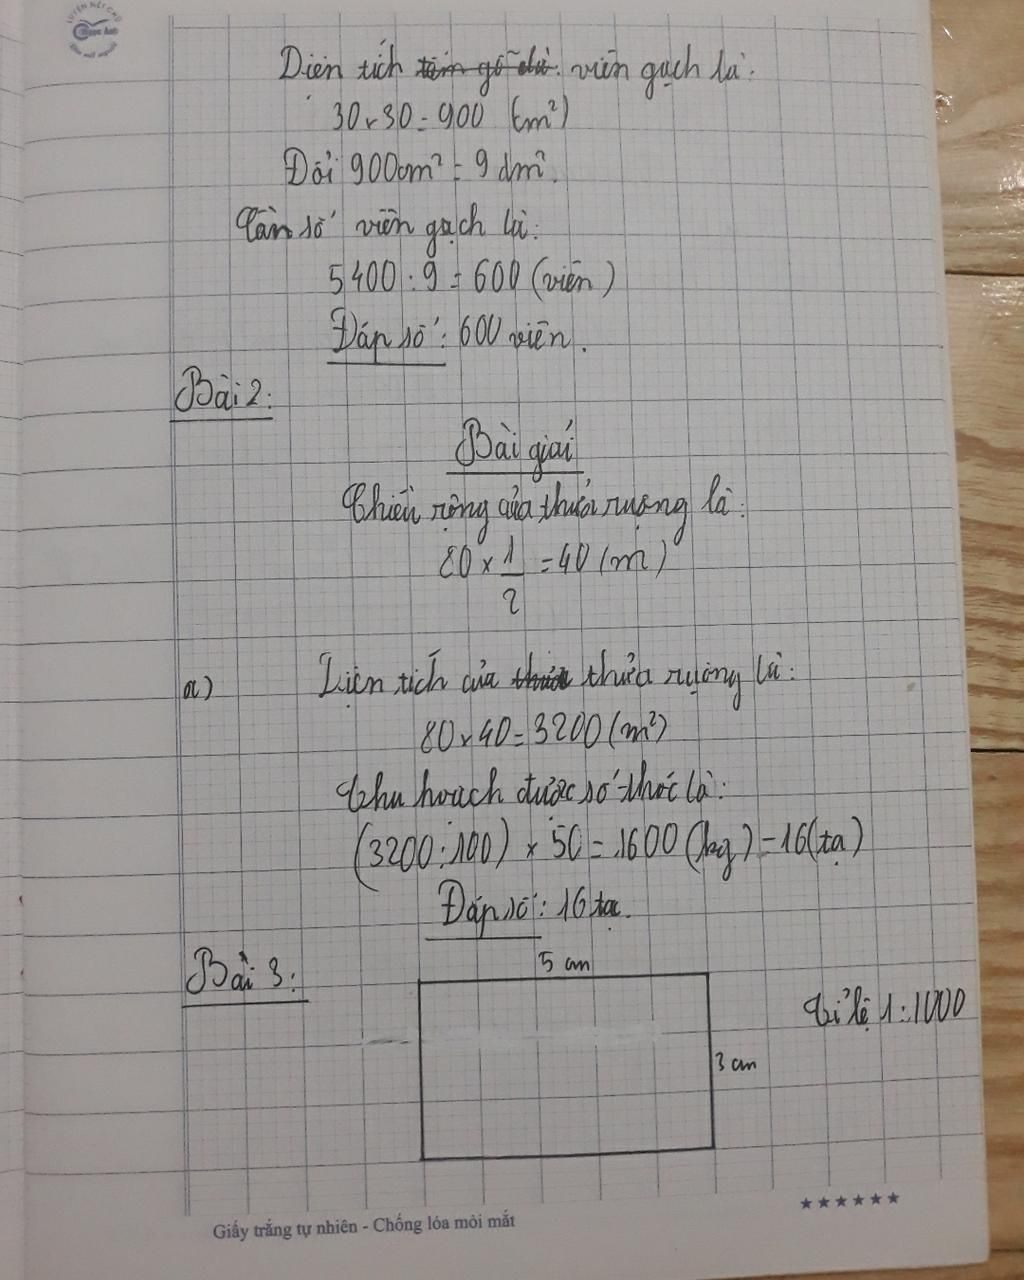 LUYỆN NÉT CHỮ
Ngọc Ánh
Diện tích tấm gỗ đã viên gạch là:
30 x 30 = 900 (cm²)
Đổi 900cm² = 9 dm².
Cần số viên gạch là:
5400 : 9 = 600 (viên)
Đáp số: 600 viên.
Bài 2:
Bài giải
Chiều rộng của thửa ruộng là:
80 x 1/2 = 40 (m)
a) Diện tích của thửa thửa ruộng là:
80 x 40 = 3200 (m²)
Thu hoạch được số thóc là:
(3200 : 100) x 50 = 1600 (kg) = 16 (tạ)
Đáp số: 16 tạ.
Bài 3:
5 cm
Tỉ lệ 1 : 1000
3 cm
★★★★★★
Giấy trắng tự nhiên - Chống lóa mỏi mắt